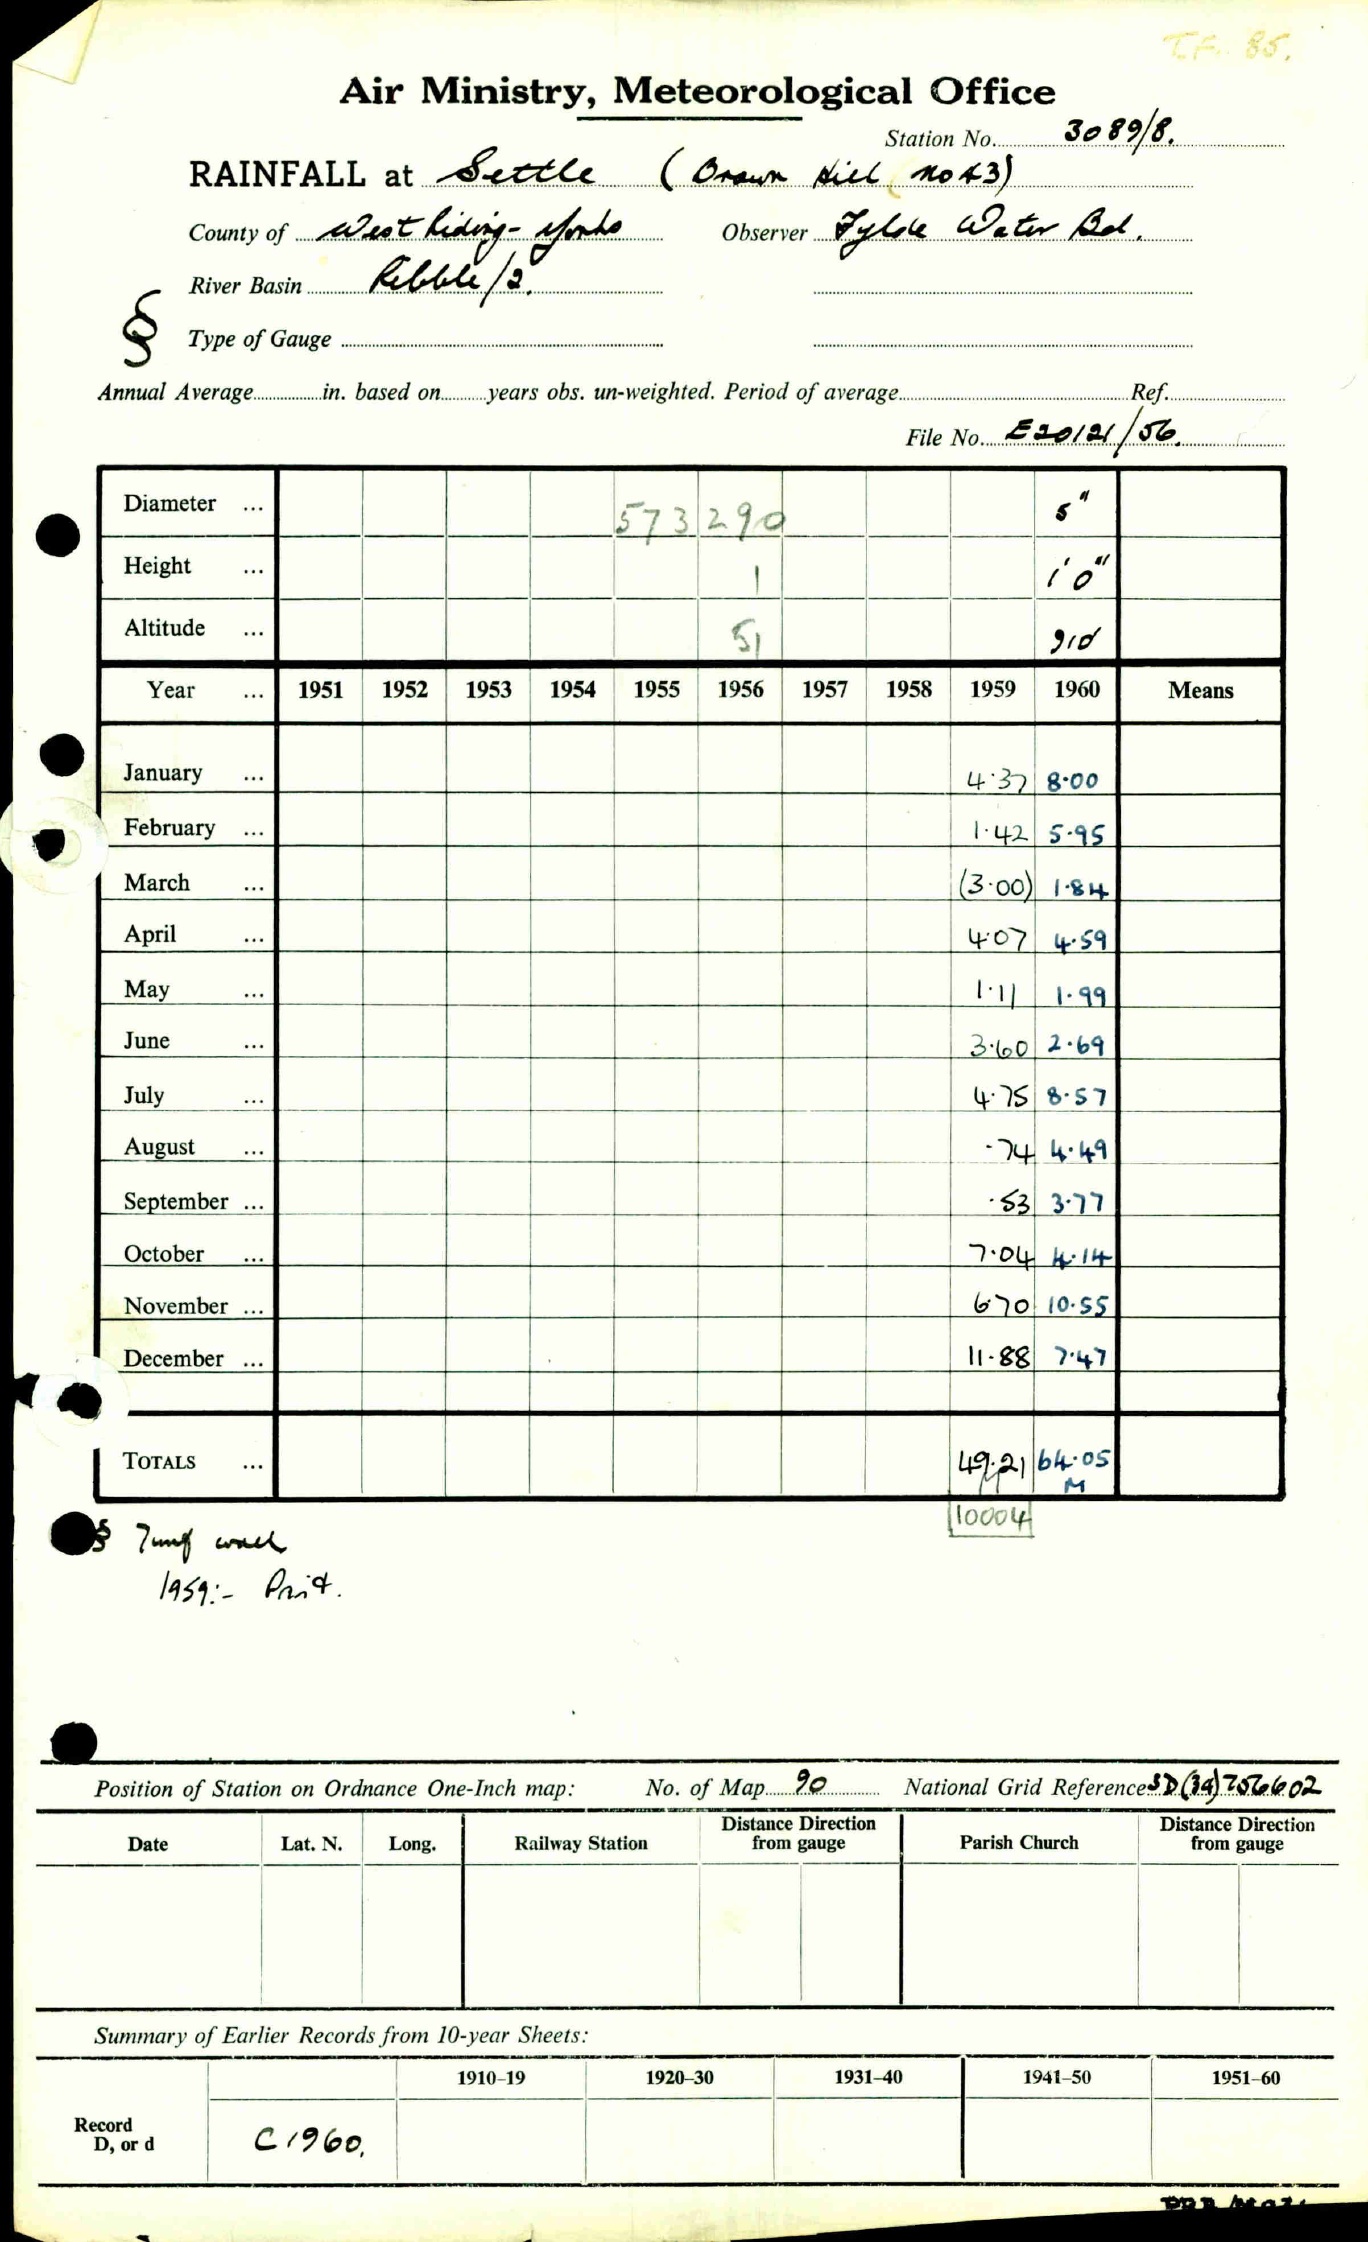 T.F. 85.
Air Ministry, Meteorological Office
Station No. 3089/8.
RAINFALL at Settle (Brown Hill (No 43)
County of West Riding - Yorks Observer Fylde Water Bd.
River Basin Ribble/2.
§ Type of Gauge
Annual Average in. based on years obs. un-weighted. Period of average Ref.
File No. E20121/56.
Diameter ... 573290 5"
Height ... 1 1'0"
Altitude ... 51 910
Year ... 1951 1952 1953 1954 1955 1956 1957 1958 1959 1960 Means
January ... 4·37 8·00
February ... 1·42 5·95
March ... (3·00) 1·84
April ... 4·07 4·59
May ... 1·11 1·99
June ... 3·60 2·69
July ... 4·75 8·57
August ... ·74 4·49
September ... ·53 3·77
October ... 7·04 4·14
November ... 6·70 10·55
December ... 11·88 7·47
TOTALS ... 49·21 64·05
M
10004
§ Turf wall
1959:-
Position of Station on Ordnance One-Inch map: No. of Map 90 National Grid Reference SD(34)756602
Date Lat. N. Long. Railway Station Distance Direction from gauge Parish Church Distance Direction from gauge
Summary of Earlier Records from 10-year Sheets:
1910–19 1920–30 1931–40 1941–50 1951–60
Record
D, or d C1960.